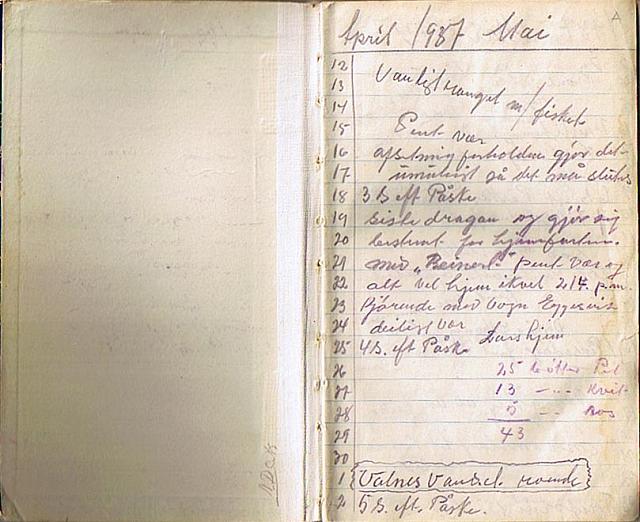 April 1937 Mai
12
13 Vanligt mangel m/ fisket
14
15 Pent vær
16 afsetning forholdene gjør det
17 umuligt så det må sluttes
18 3 S. eft Påske
19 siste dragan og gjør sig
20 bestemt for hjemfarten.
21 med "Reinert" pent vær og
22 alt vel hjem ikvel 21/4. p.m.
23 Kjørende med vogn Eggesvik
24 deiligt vær
25 4 S. eft Påske Lars hjem
26 25 bøtter
27 13 -"-
28 5 -"-
29 43
30
1 Valnes Vandsel.
2 5 S. eft. Påske.